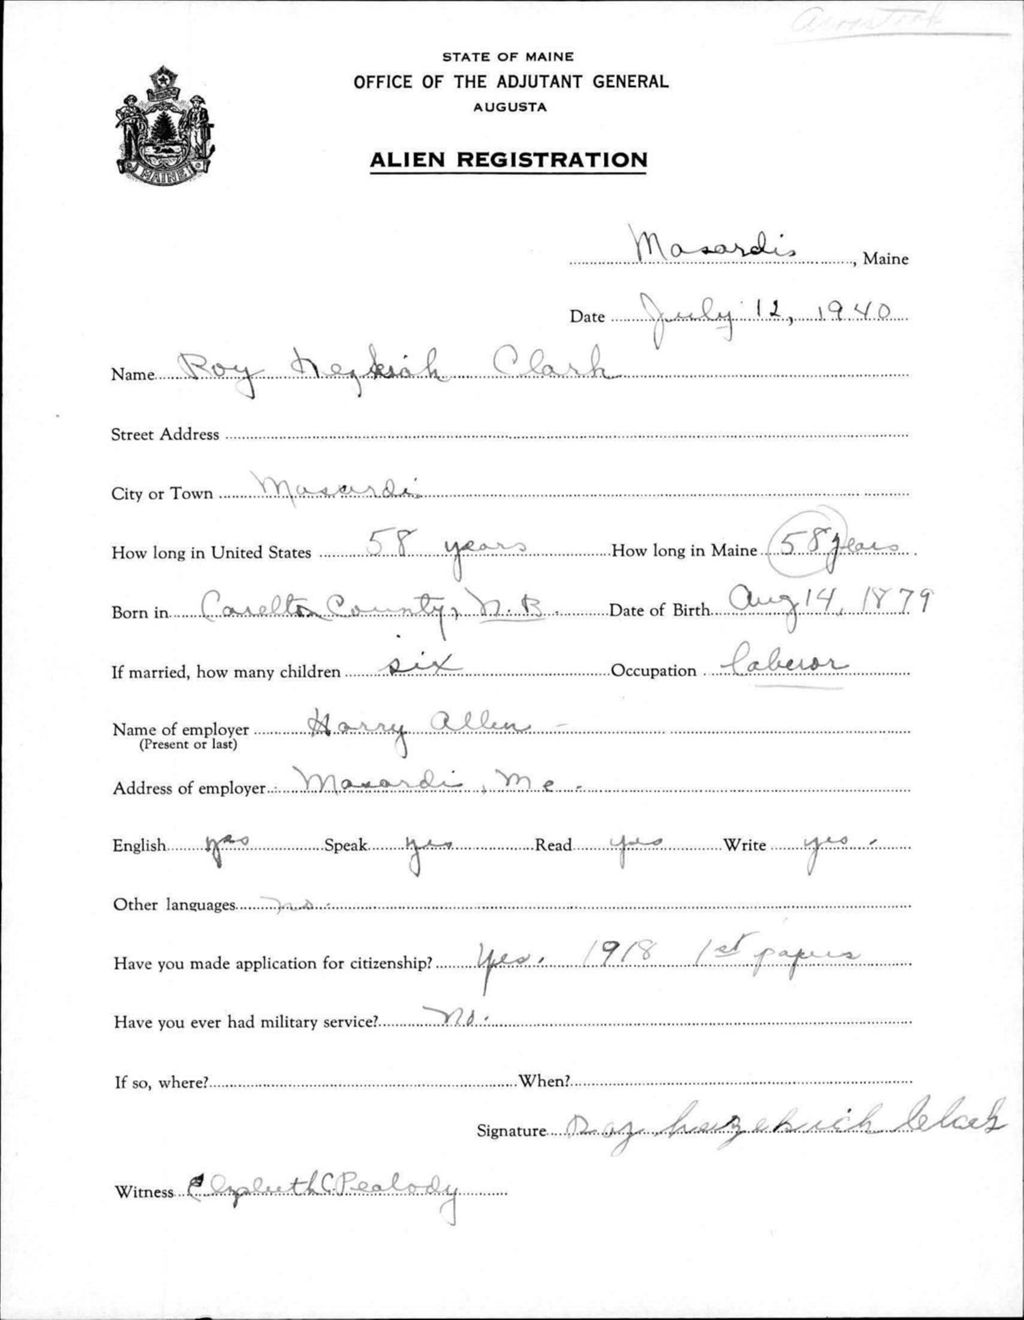 Aroostook
STATE OF MAINE
OFFICE OF THE ADJUTANT GENERAL
AUGUSTA
ALIEN REGISTRATION
MAINE
Masardis, Maine
Date July 12, 1940
Name Roy Hezkiah Clark
Street Address
City or Town Masardis
How long in United States 58 years How long in Maine 58 years
Born in Carelton County, N.B. Date of Birth Aug 14, 1879
If married, how many children six Occupation laberor
Name of employer Harry Allen
(Present or last)
Address of employer Masardis, Me.
English yes Speak yes Read yes Write yes.
Other languages no.
Have you made application for citizenship? Yes. 1918 1st papers
Have you ever had military service? No.
If so, where? When?
Signature Roy Clark
Witness Elizabeth C Peabody